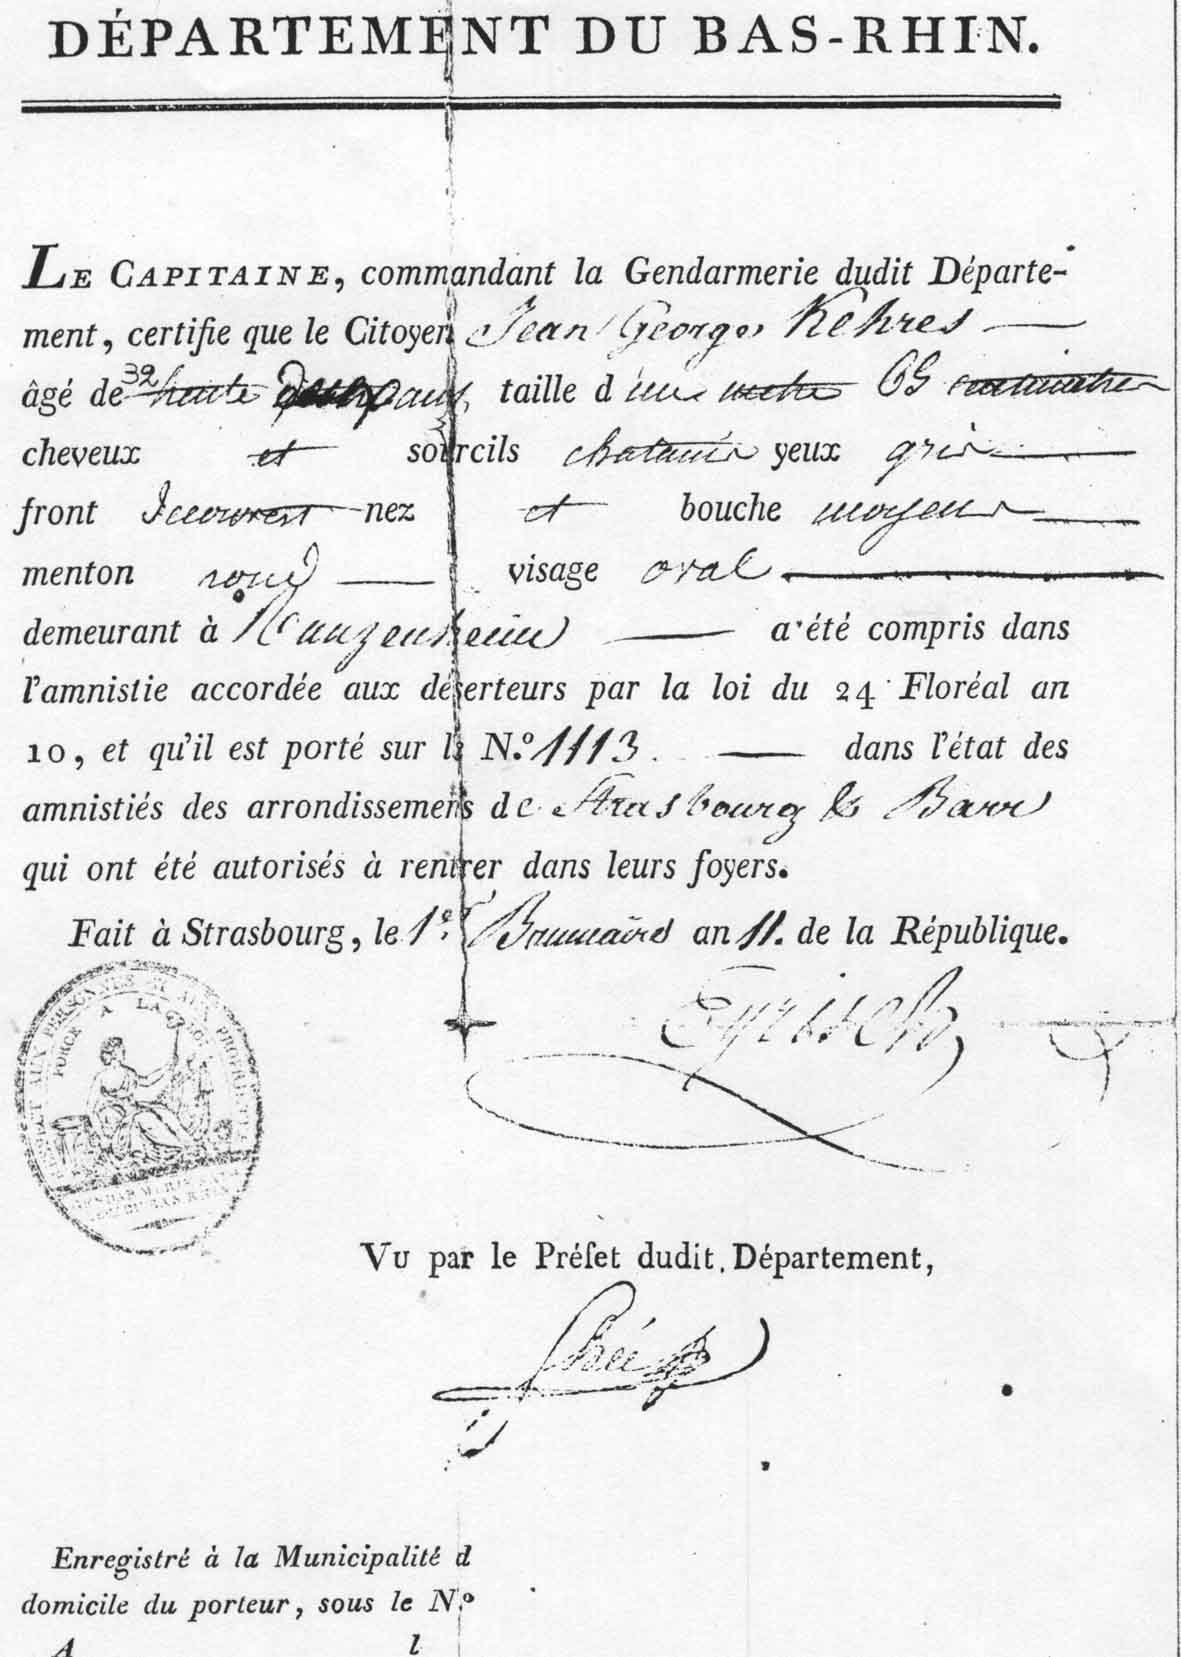 DÉPARTEMENT DU BAS-RHIN.
LE CAPITAINE, commandant la Gendarmerie dudit Départe-
ment, certifie que le Citoyen Jean George Kehres
âgé de 32 ans, taille d'un metre 65
cheveux et sourcils chatains yeux gris
front decouvert nez et bouche moyens
menton rond visage oval
demeurant à a été compris dans
l'amnistie accordée aux déserteurs par la loi du 24 Floréal an
10, et qu'il est porté sur le N.º 1113. dans l'état des
amnistiés des arrondissemens de Strasbourg & Barr
qui ont été autorisés à rentrer dans leurs foyers.
Fait à Strasbourg, le 1.er Brumaire an 11. de la République.
RESPECT AUX PERSONNES ET AUX PROPRIÉTÉS
FORCE A LA LOI
GENDARMERIE NAT.
BAS-RHIN
Vu par le Préfet dudit Département,
Shée
Enregistré à la Municipalité d
domicile du porteur, sous le N.º
A l